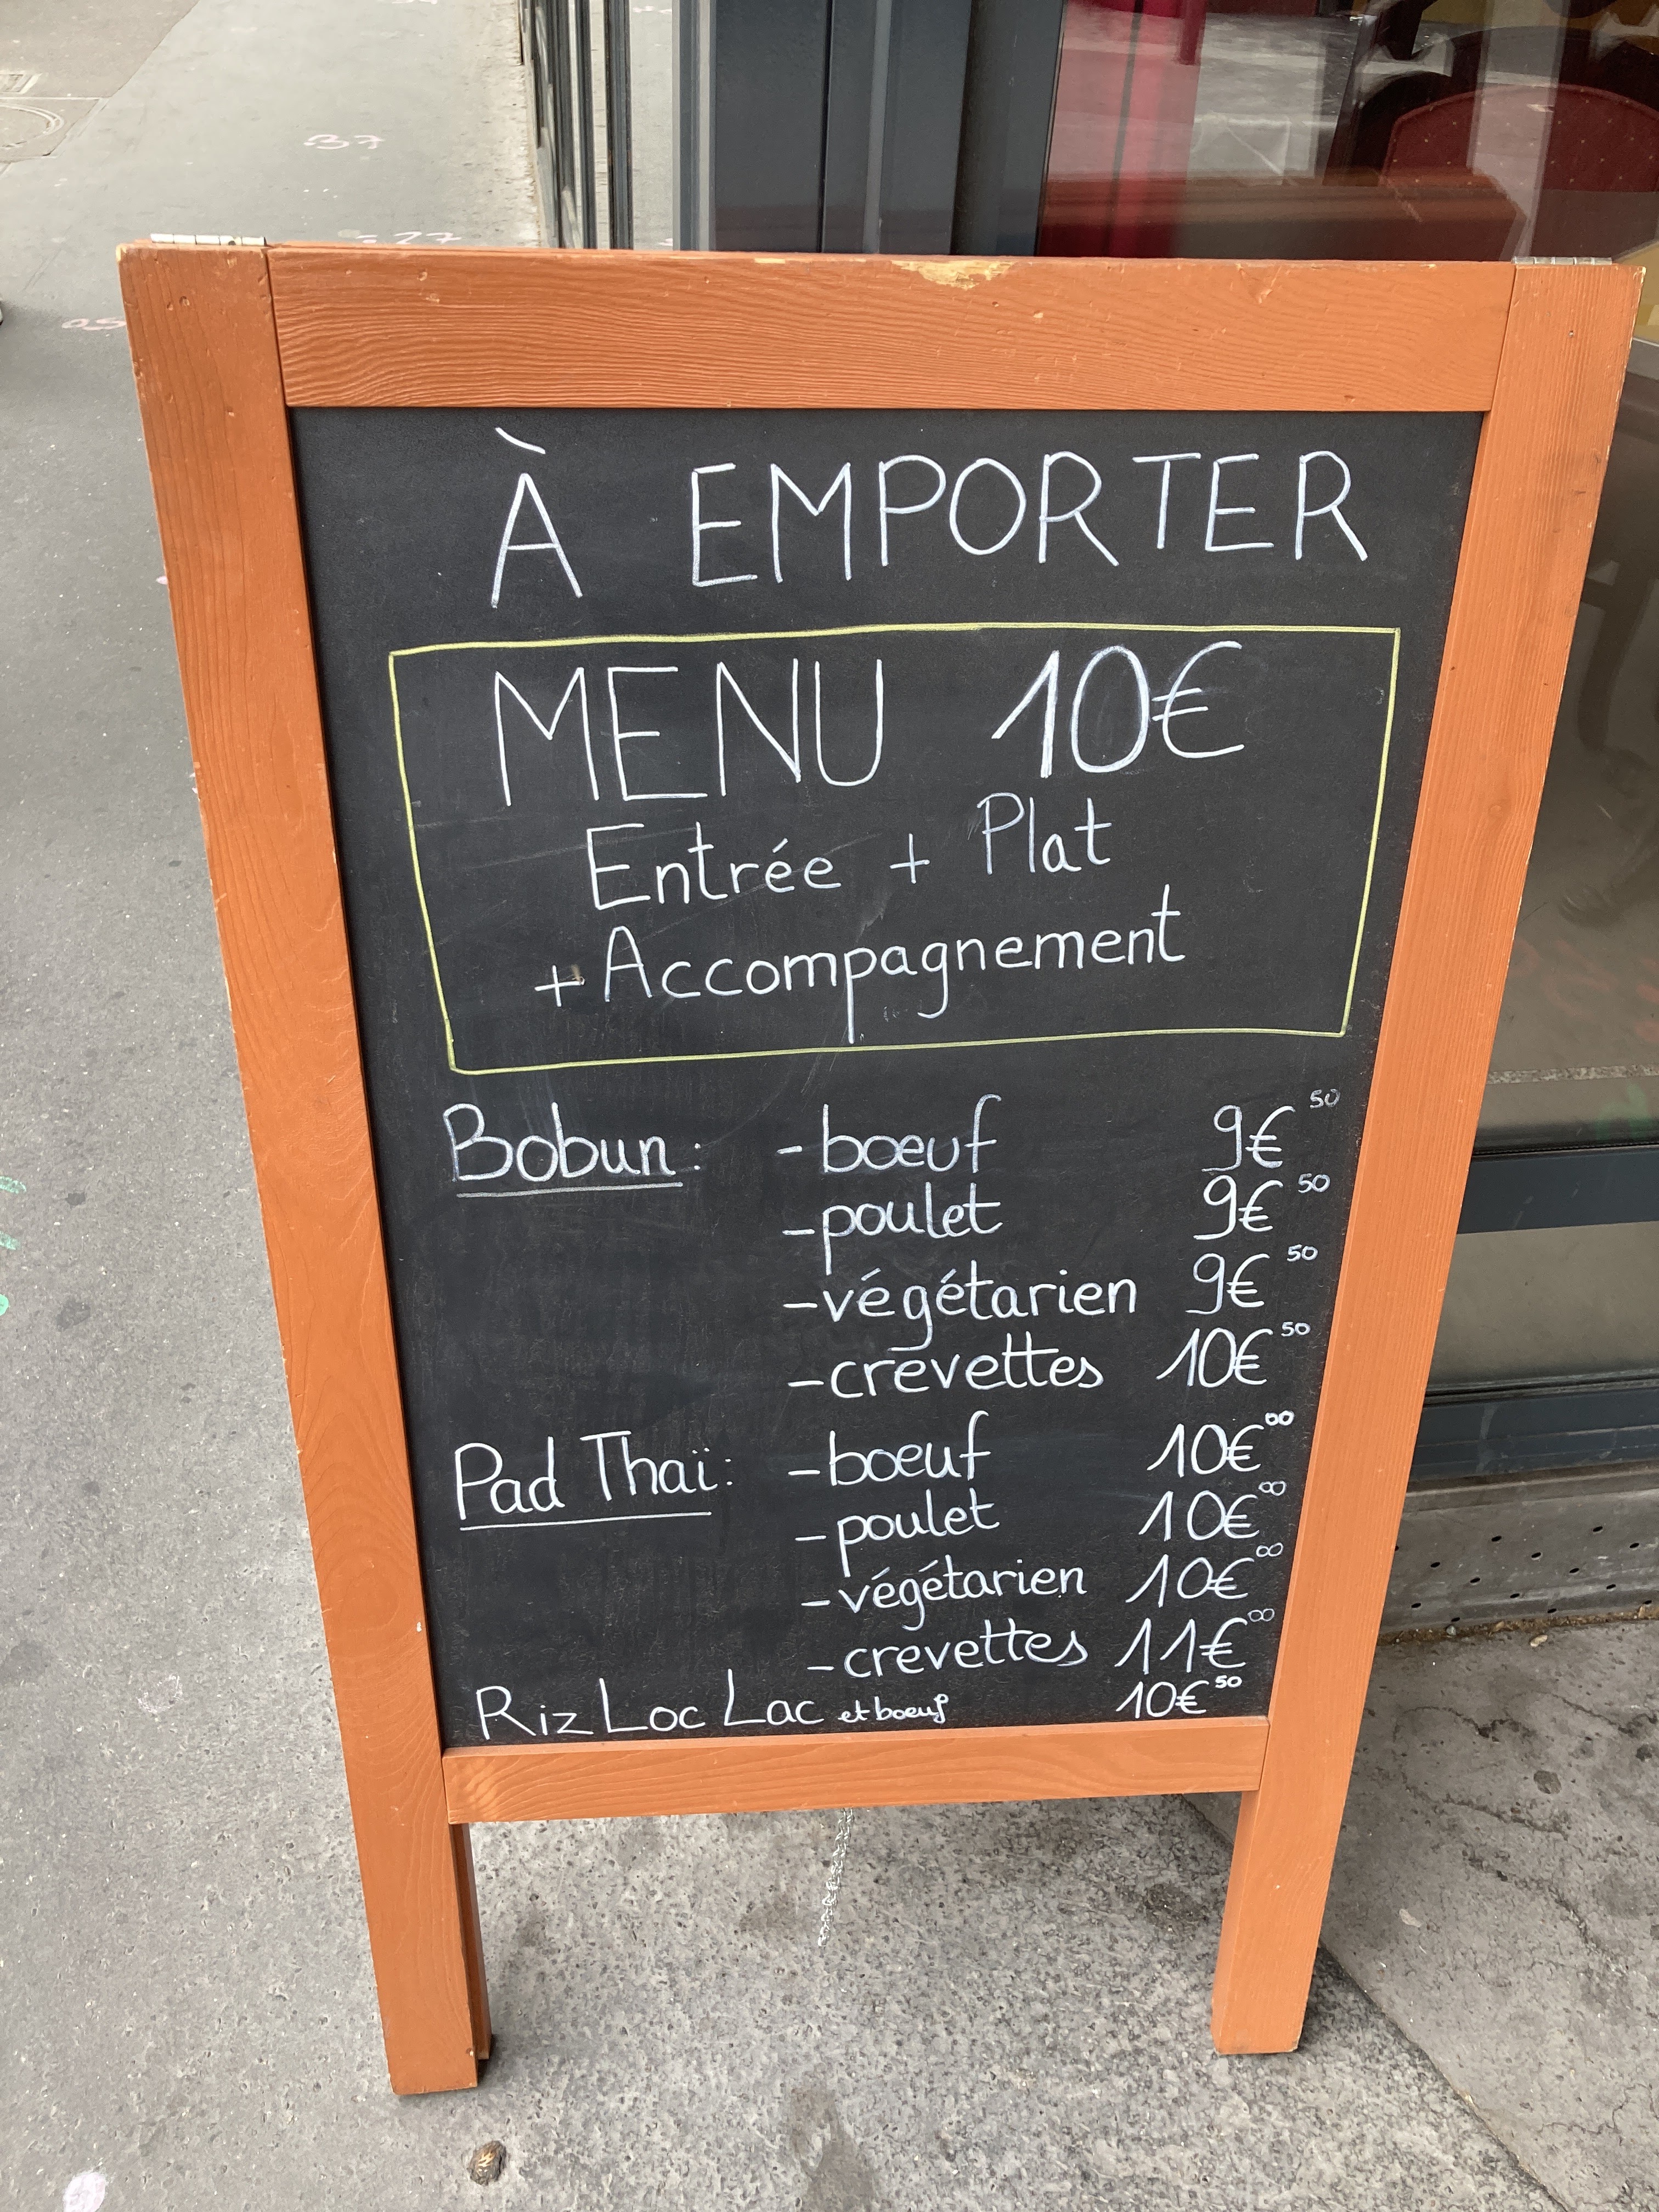 À EMPORTER
MENU 10€
Entrée + Plat
+ Accompagnement
Bobun : - bœuf 9€50
- poulet 9€50
- végétarien 9€50
- crevettes 10€50
Pad Thaï : - bœuf 10€00
- poulet 10€00
- végétarien 10€00
- crevettes 11€00
Riz Loc Lac et bœuf 10€50